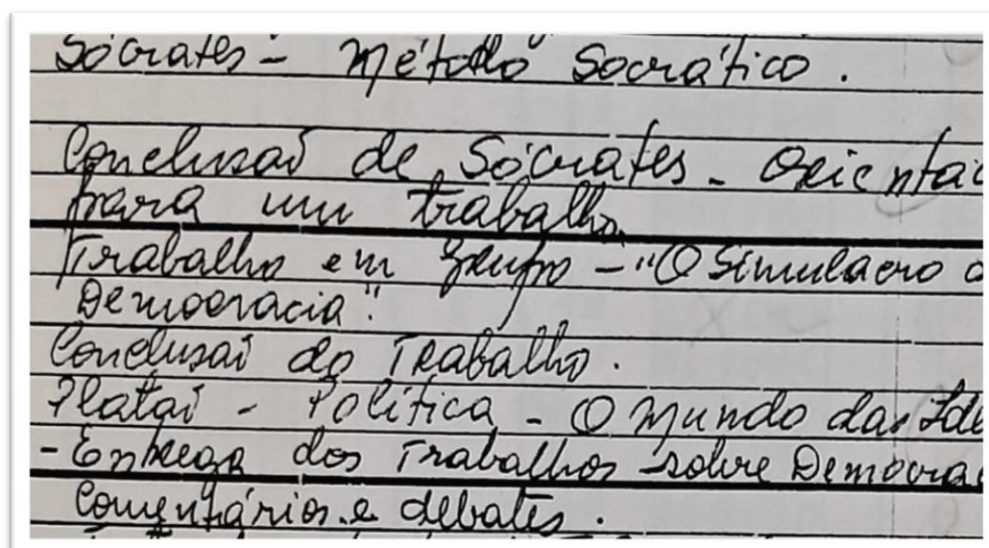 Sócrates - Método Socrático.
Conclusaõ de Sócrates - Orientaç
para um trabalho.
Trabalho em grupo - "O Simulacro d
Democracia".
Conclusaõ do Trabalho.
Plataõ - Política - O Mundo das Ide
- Entrega dos Trabalhos sobre Democra
Comentários e debates.